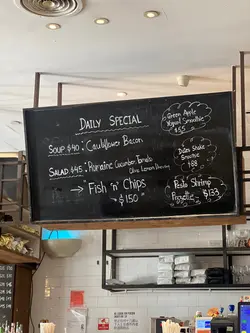 DAILY SPECIAL
SOUP $40 : Cauliflower Bacon
SALAD $45 : Romaine Cucumber Tomato
Olive Lemon
→ Fish 'n' Chips
→ $150
Green Apple
Yogurt Smoothie
$55
Dates Shake
Smoothie
$88
Pesto Shrimp
$133